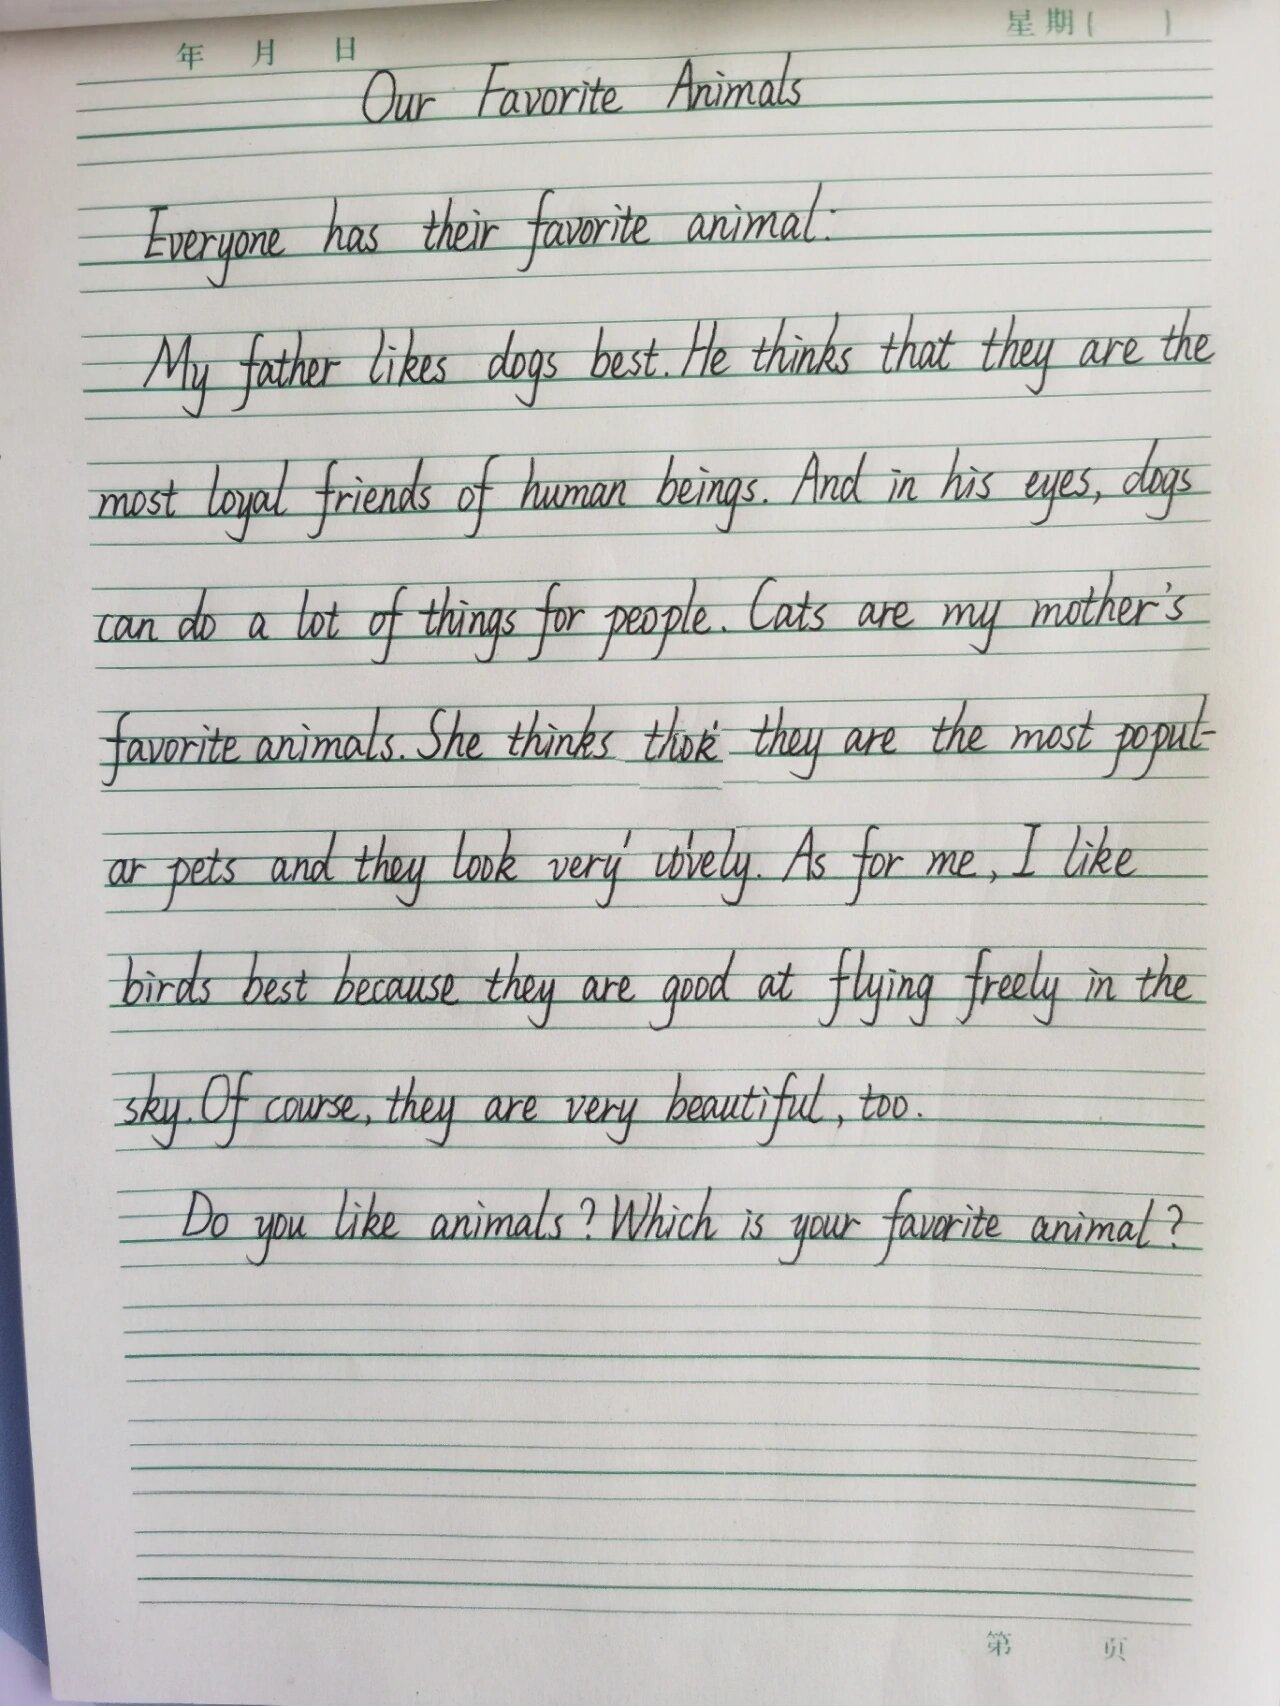 年 月 日 星期( )
Our Favorite Animals
Everyone has their favorite animal:
My father likes dogs best. He thinks that they are the
most loyal friends of human beings. And in his eyes, dogs
can do a lot of things for people. Cats are my mother's
favorite animals. She thinks they are the most popul-
ar pets and they look very lovely. As for me, I like
birds best because they are good at flying freely in the
sky. Of course, they are very beautiful, too.
Do you like animals? Which is your favorite animal?
第 页